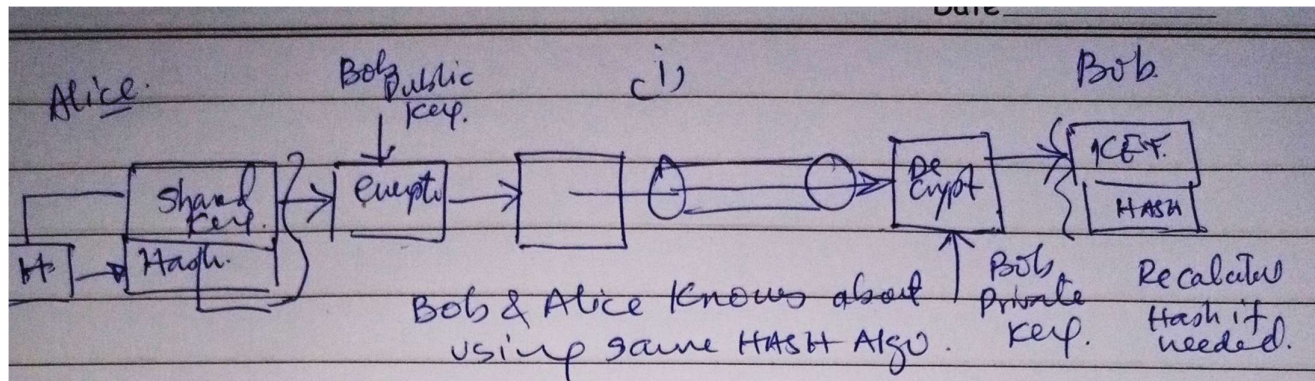 Date
Alice.
Bob Public
key.
(i)
Bob.
Shared
key.
Encrypt
De
Crypt
KEY.
HASH
H
Hash.
Bob & Alice Knows about
using same HASH Algo.
Bob
Private
key.
Recalculates
Hash if
needed.